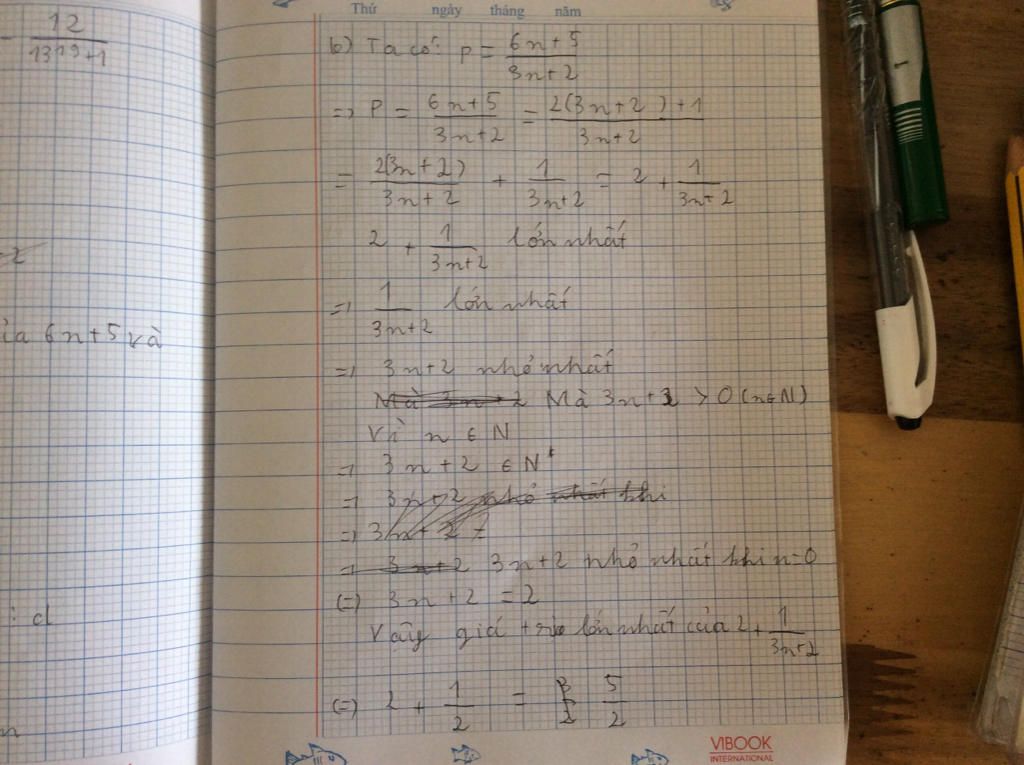 - 12/(13¹⁹+1)
-2
ủa 6n+5 và
: d
n
Thứ ngày tháng năm
b) Ta có: P = (6n+5)/(3n+2)
=> P = (6n+5)/(3n+2) = (2(3n+2)+1)/(3n+2)
= (2(3n+2))/(3n+2) + 1/(3n+2) = 2 + 1/(3n+2)
2 + 1/(3n+2) lớn nhất
=> 1/(3n+2) lớn nhất
=> 3n+2 nhỏ nhất
Mà 3n+2 Mà 3n+2 > 0 (n∈N)
Vì n ∈ N
=> 3n+2 ∈ N*
=> 3n+2 nhỏ nhất khi
=> 3n+2
=> 3n+2 3n+2 nhỏ nhất khi n=0
(=) 3n+2 = 2
Vậy giá trị lớn nhất của 2 + 1/(3n+2)
(=) 2 + 1/2 = 5/2
VIBOOK
INTERNATIONAL